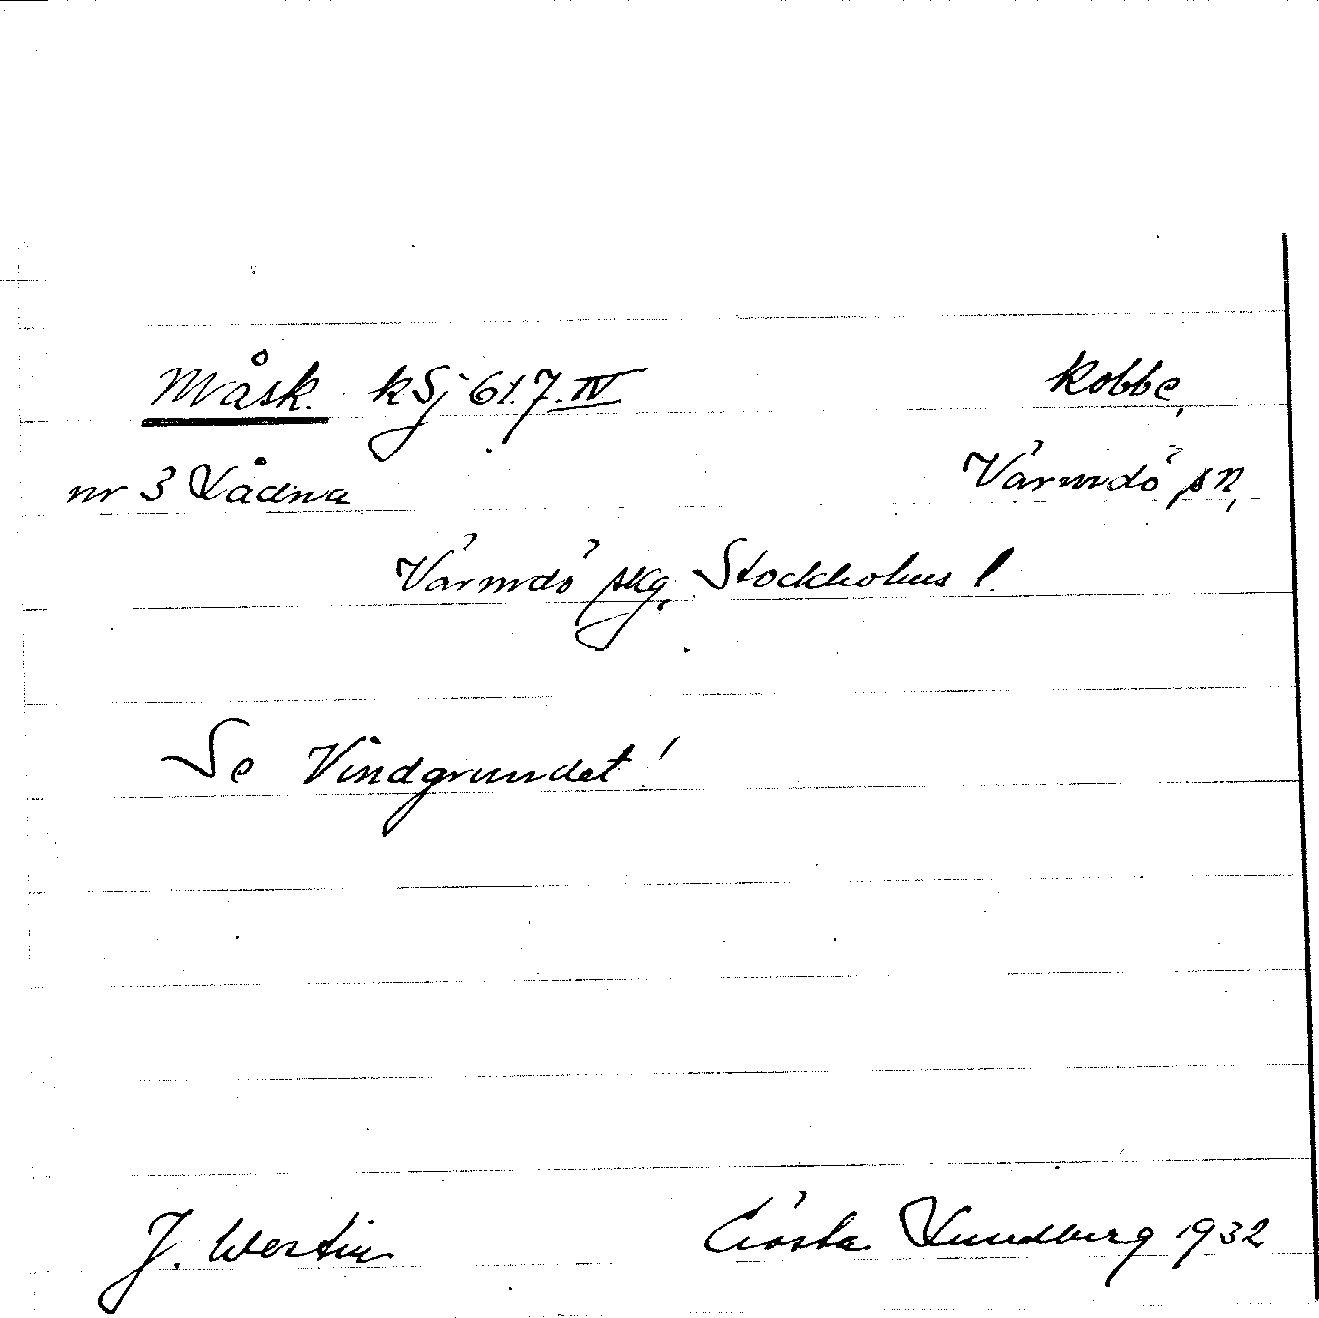 Måsk. kSj 61.7.IV kobbe,
nr 3 Lådna Värmdö sn,
Värmdö skg. Stockholms l.
Se Vindgrundet!
J. Westin Gösta Lundberg 1932